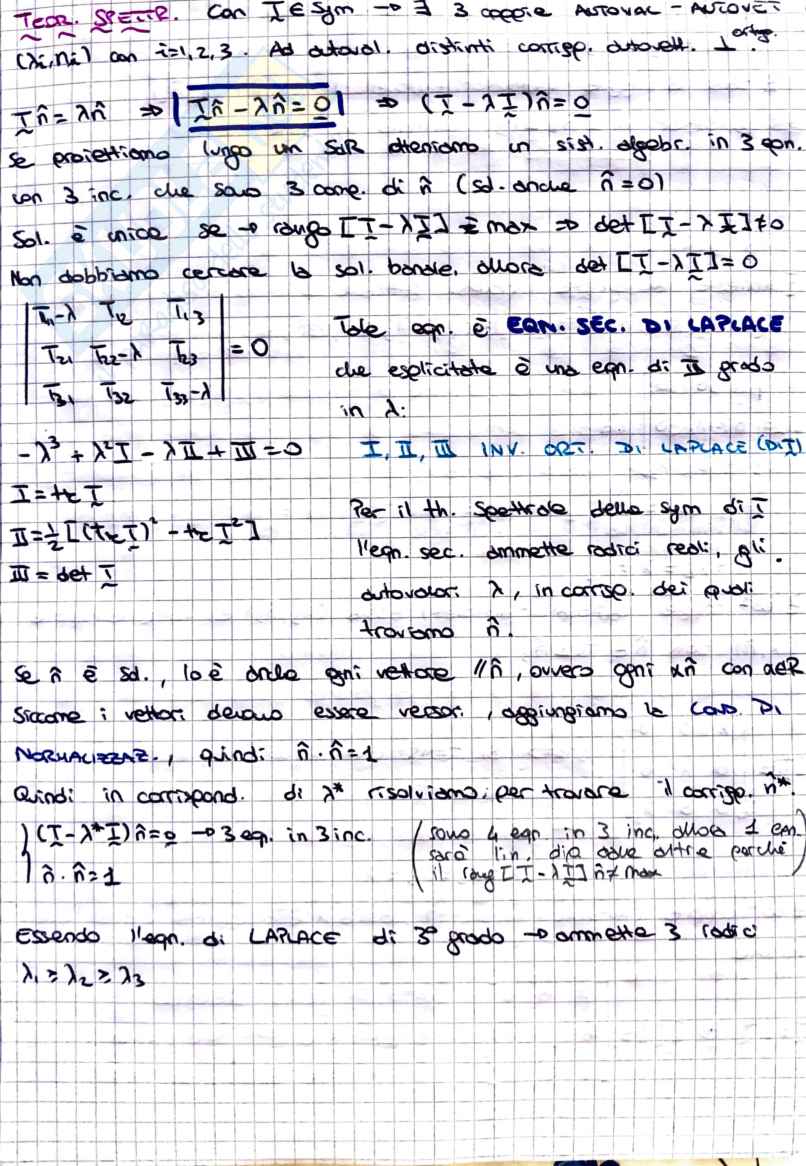 TEOR. SPETTR. Con T ∈ Sym → ∃ 3 coppie AUTOVAL - AUTOVET
(λi, ni) con i=1,2,3. Ad autoval. distinti corrisp. autovett. ⊥ ortog.
T n̂ = λ n̂ ⇒ | T n̂ - λ n̂ = 0 | ⇒ (T - λ I) n̂ = 0
se proiettiamo lungo un SdR otteniamo un sist. algebr. in 3 eqn.
con 3 inc. che sono 3 comp. di n̂ (sol. anche n̂ = 0)
Sol. è unica se → rango [T - λ I] è max ⇒ det [T - λ I] ≠ 0
Non dobbiamo cercare la sol. banale, allora det [T - λ I] = 0
| T11-λ T12 T13 |
| T21 T22-λ T23 | = 0
| T31 T32 T33-λ |
Tale eqn. è EQN. SEC. DI LAPLACE
che esplicitata è una eqn. di III grado
in λ:
-λ³ + λ² I - λ II + III = 0 I, II, III INV. ORT. DI LAPLACE (DI T)
I = tr T
II = 1/2 [(tr T)² - tr T²]
III = det T
Per il th. spettrale della sym di T
l'eqn. sec. ammette radici reali, gli
autovalori λ, in corrisp. dei quali
troviamo n̂.
Se n̂ è sol., lo è anche ogni vettore // n̂, ovvero ogni α n̂ con α∈R
Siccome i vettori devono essere versori, aggiungiamo la COND. DI
NORMALIZZAZ., quindi n̂ · n̂ = 1
Quindi in corrispond. di λ* risolviamo per trovare il corrisp. n̂*.
{ (T - λ* I) n̂ = 0 → 3 eq. in 3 inc.
{ n̂ · n̂ = 1
(sono 4 eqn. in 3 inc. allora 1 eqn.
sarà lin. dip. dalle altre perché
il rang [T - λ I] n̂ ≠ max)
Essendo l'eqn. di LAPLACE di 3° grado → ammette 3 radici
λ1 ≥ λ2 ≥ λ3